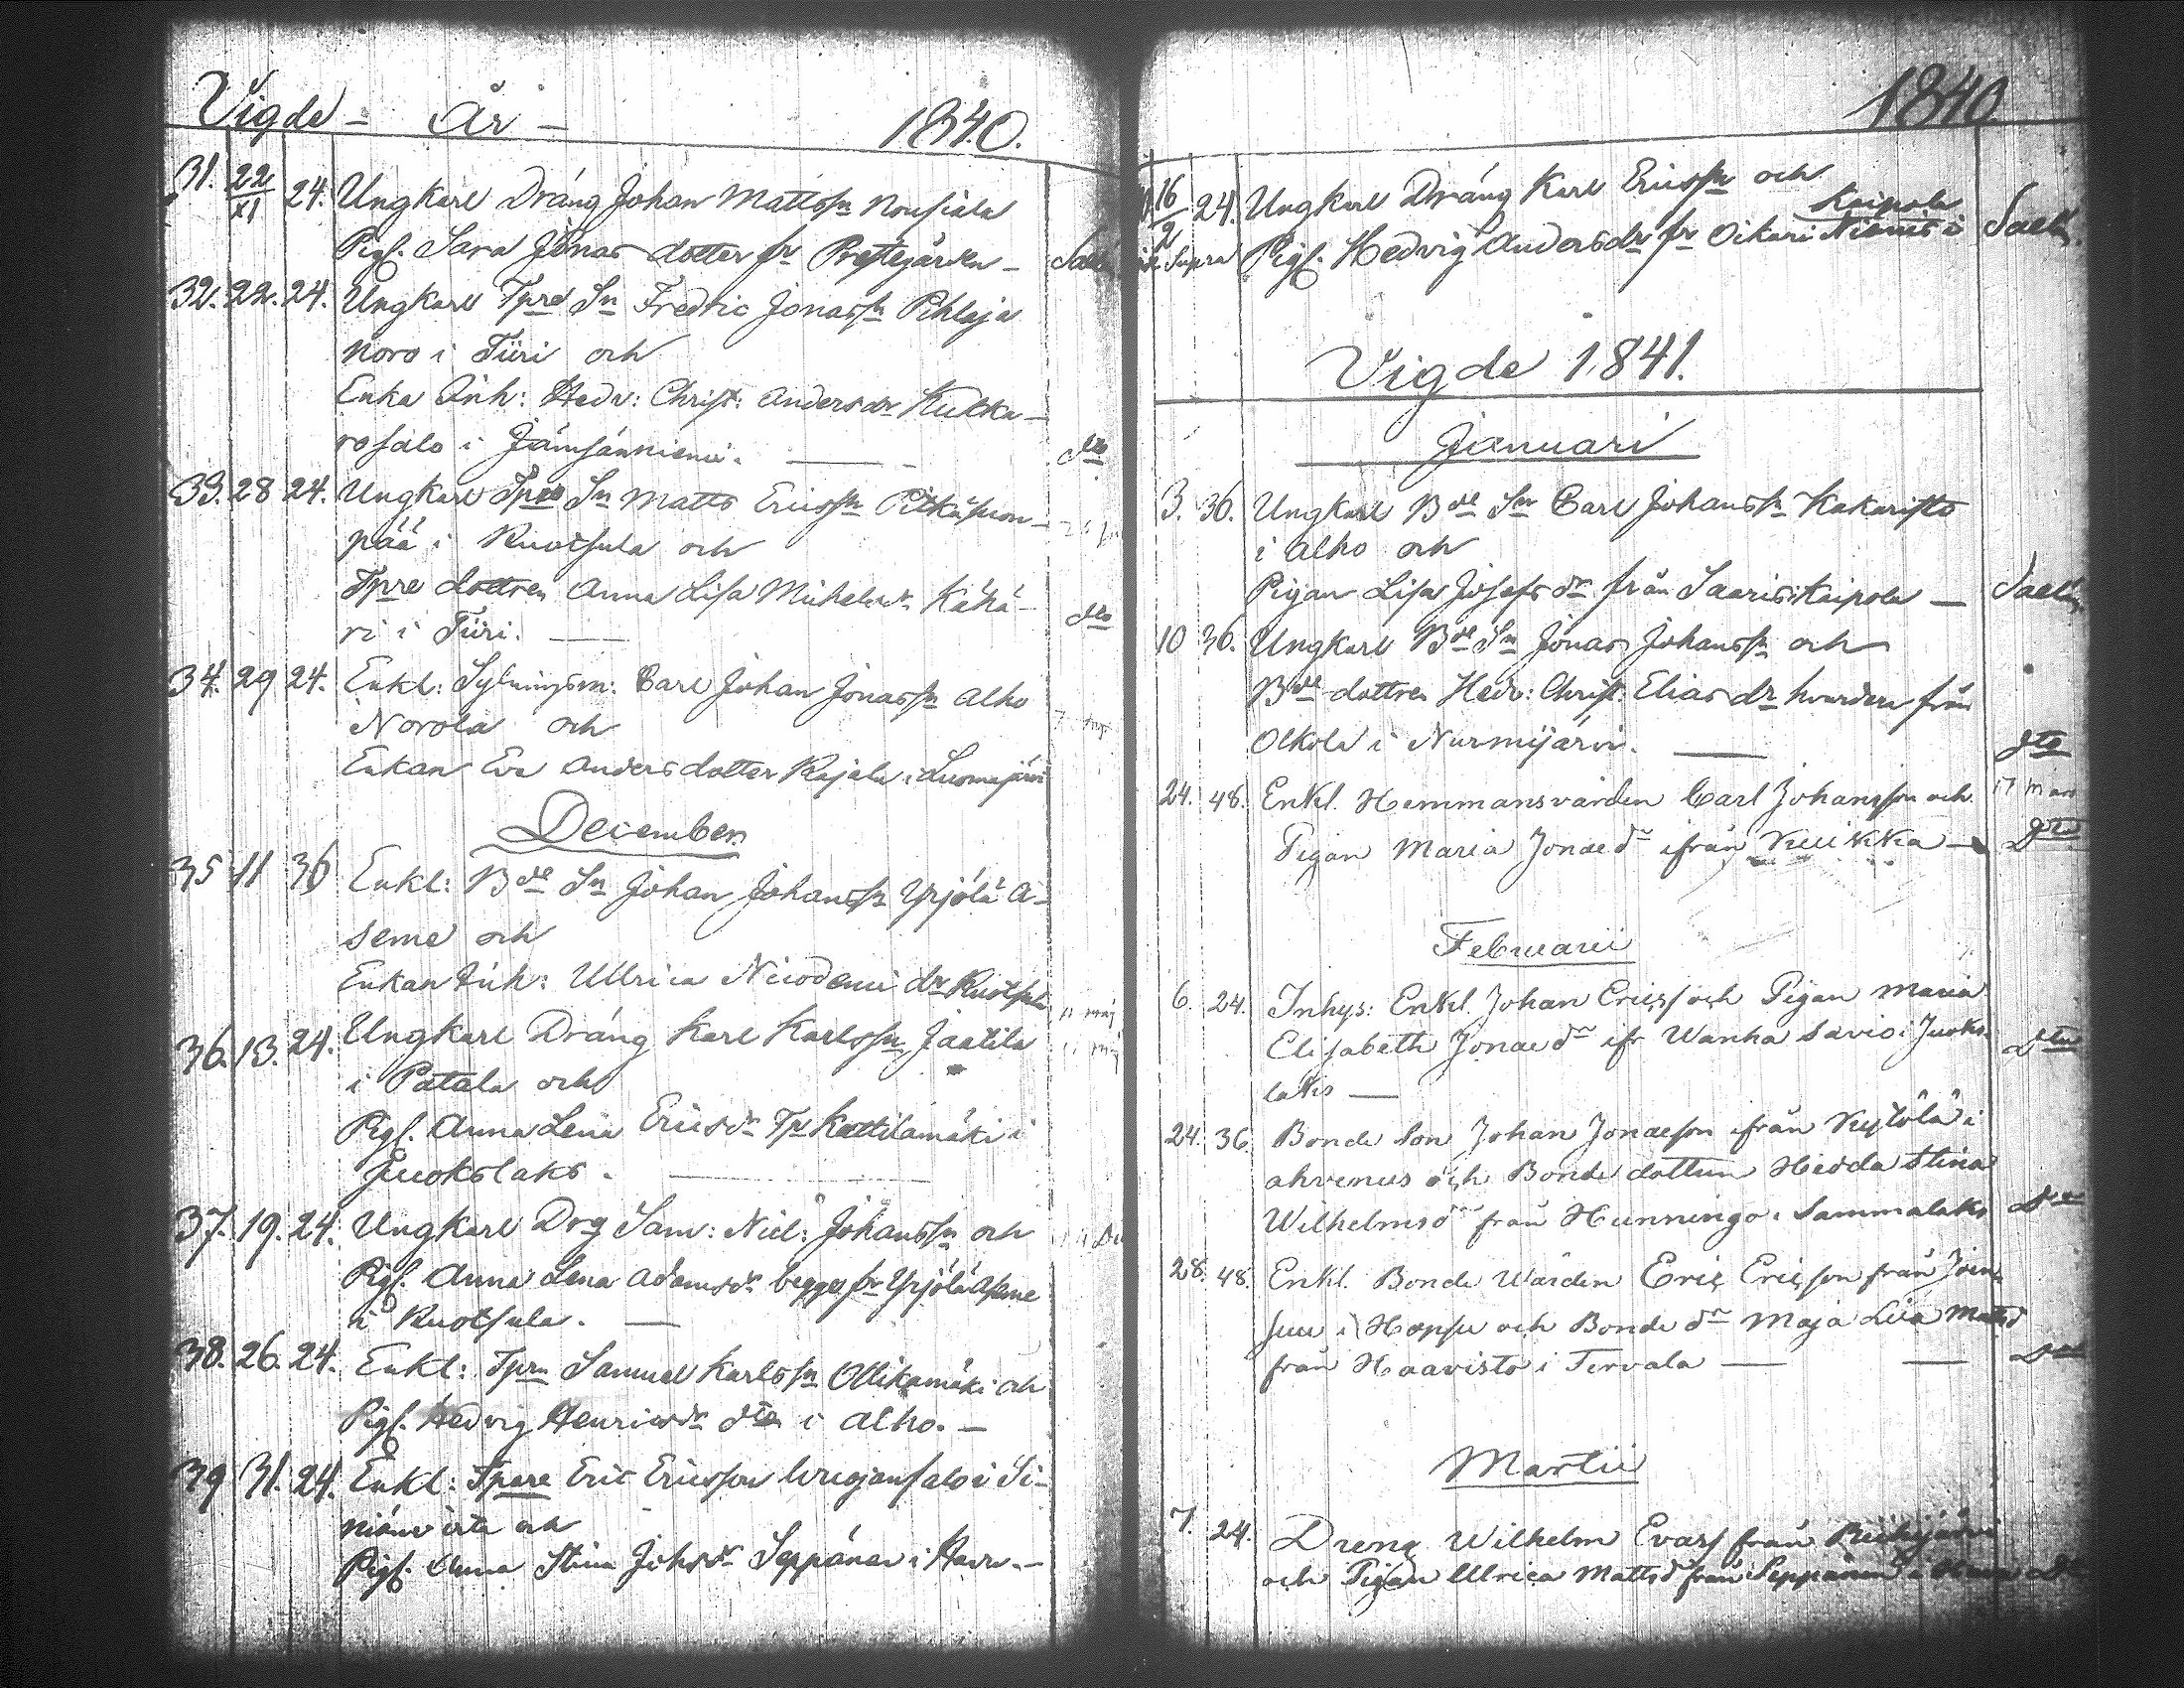 Vigde - År - 1840.
31. 22/XI 24. Ungkarl Dräng Johan Mattssn Nousiala
Pigf. Sara Jonas dotter fr Prestegården - Saelan
32. 22. 24. Ungkarl Tpre Sn Fredric Jonassn Pihlaja
noro i Tiiri och
Enka Inh: Hedv: Christ: Andersdr Kukka-
rosalo i Jämsänniemi. — dto
33. 28 24. Ungkarl Tpre Sn Matts Ericssn Pitkäsuon-
pää i Ruotsula och
Tpre dottren Anna Lisa Michelsdr Kähä-
ri i Tiiri. — dto
34. 29 24. Enkl: Sytningsm: Carl Johan Jonassn Alho
Norola och
Enkan Eva Anders dotter Rajala i Luomajärvi
December.
35 11 36 Enkl: Bde Sn Johan Johanssn Yrjölä A-
seme och
Enkan Inh: Ullrica Nicodemi dr Ruotsula
36. 13. 24. Ungkarl Dräng Karl Karlssn Jaatila
i Patala och
Pigf. Anna Lena Ericsdr Tp Kattilamäki i
Juokslaks. —
37. 19. 24. Ungkarl Drg Sam: Nicl: Johanssn och
Pigf. Anna Lena Adamsdr begge fr Yrjölä Aseme
i Ruotsula. —
38. 26. 24. Enkl: Tprn Samuel Karlssn Ollikamäki och
Pigf. Hedvig Henricsdr dto i Alho. -
39 31. 24. Enkl: Tpare Eric Ericsson i Si-
och
Pigf. Anna Stina Johsdr Seppänen i -
1840
16/2 24. Ungkarl Dräng Karl Ericssn och
Kaipola
Supra Pigf. Hedvig Andersdr fr Oikari Niemis i Saelan
Vigde 1841.
Januari
3. 36. Ungkarl Bde Sn Carl Johanssn Kakaristo
i Alho och
Pigan Lisa Josefs dr från Saaris i Kaipola — Saelan
10 36. Ungkarl Bde Sn Jonas Johanssn och
Bde dottren Hedv: Christ: Elias dr hvardera från
Olkola i Nurmijärvi. — dto
24. 48. Enkl. Hemmansvärden Carl Johansson och 17 mars
Pigan Maria Jonaedr ifrån Kuikka — Dto
Februarii
6. 24. Inhys: Enkl. Johan Ericss och Pigan Maria
Elisabeth Jonaedr ifr Wanha Savio i Juoks-
laks — Dto
24. 36. Bonde Son Johan Jonaeson ifrån Kytölä i
ahvenus och Bonde dottren Hedda Stina
Wilhelmsdr från Hunningo i Sammalaks Dto
28. 48. Enkl. Bonde Wärden Eric Ericson från Joen-
suu i Hopsu och Bonde dr Maja Lisa Mattsd
från Haavisto i Tervala — — Dto
Martii
7. 24. Dreng Wilhelm Evars från
och Pigan Ulrica Mattsd från Seppänen i